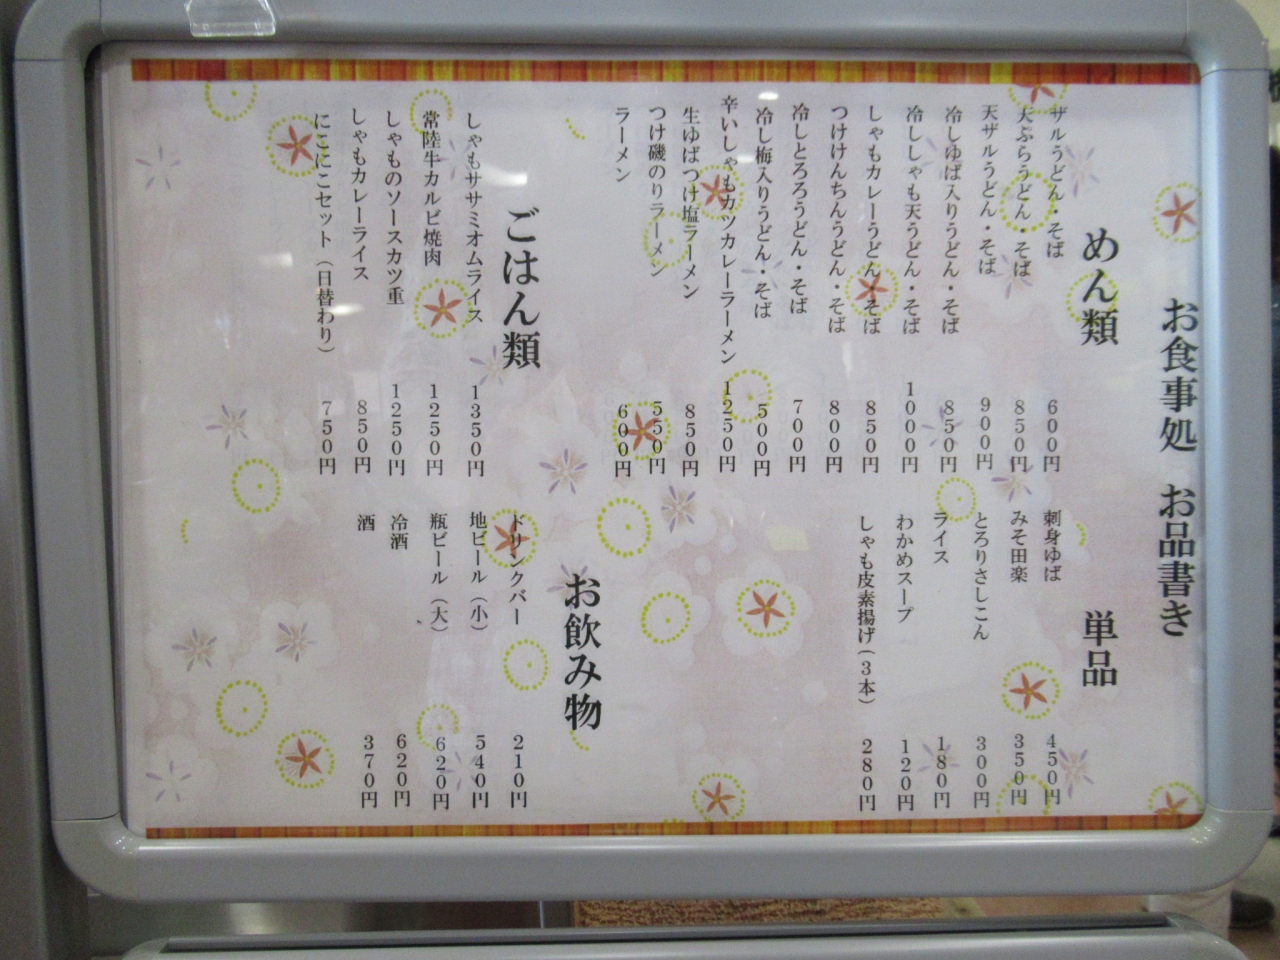 お食事処 お品書き
めん類
ザルうどん・そば 600円
天ぷらうどん・そば 850円
天ザルうどん・そば 900円
冷しゆば入りうどん・そば 850円
冷ししゃも天うどん・そば 1000円
しゃもカレーうどん・そば 850円
つけけんちんうどん・そば 800円
冷しとろろうどん・そば 700円
冷し梅入りうどん・そば 500円
辛いしゃもカツカレーラーメン 1250円
生ゆばつけ塩ラーメン 850円
つけ磯のりラーメン 550円
ラーメン 600円
ごはん類
しゃもササミオムライス 1350円
常陸牛カルビ焼肉 1250円
しゃものソースカツ重 1250円
しゃもカレーライス 850円
にこにこセット(日替わり) 750円
単品
刺身ゆば 450円
みそ田楽 350円
とろりさしこん 300円
ライス 180円
わかめスープ 120円
しゃも皮素揚げ(3本) 280円
お飲み物
ドリンクバー 210円
地ビール(小) 540円
瓶ビール(大) 620円
冷酒 620円
酒 370円